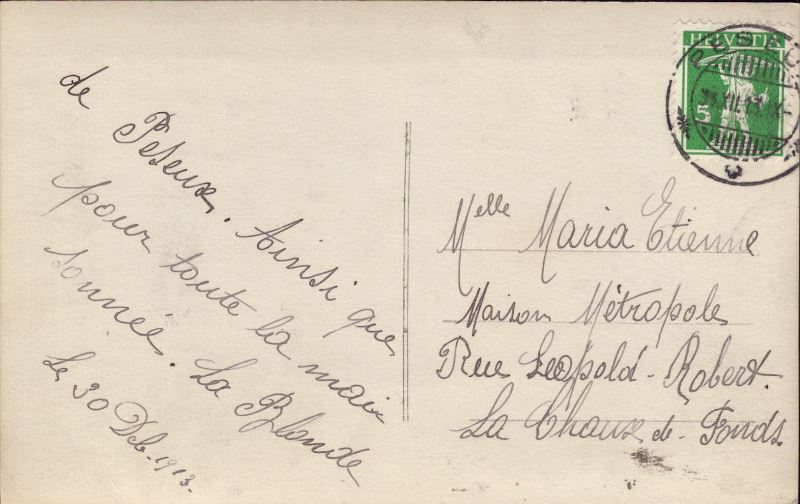 de Peseux. Ainsi que
pour toute la mai
sonnée. La Blonde
Le 30 Deb. 1913.
HELVETIA
5
PESEUX
XII.13
Melle Maria Etienne
Maison Métropole
Rue Leopold-Robert.
La Chaux-de-Fonds